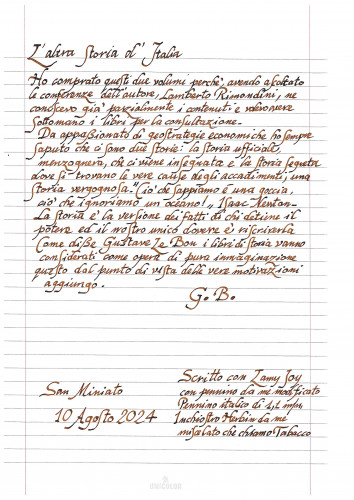 L'altra Storia d'Italia
Ho comprato questi due volumi perchè, avendo ascoltato
le conferenze dell'autore, Lamberto Rimondini, ne
conoscevo già parzialmente i contenuti e volevo avere
sottomano i libri per la consultazione.
Da appassionato di geostrategie economiche ho sempre
saputo che ci sono due storie: la storia ufficiale,
menzognera, che ci viene insegnata e la storia segreta
dove si trovano le vere cause degli accadimenti, una
storia vergognosa. "Ciò che sappiamo è una goccia,
ciò che ignoriamo un oceano!", Isaac Newton.
La storia è la versione dei fatti di chi detiene il
potere ed il nostro unico dovere è riscriverla
Come disse Gustave Le Bon i libri di storia vanno
considerati come opera di pura immaginazione
questo dal punto di vista delle vere motivazioni
aggiungo.
G. B.
San Miniato
10 Agosto 2024
Scritto con Lamy Joy
con pennino da me modificato
Pennino italico di 1,1 mm,
Inchiostro Herbin da me
miscelato che chiamo Tabacco